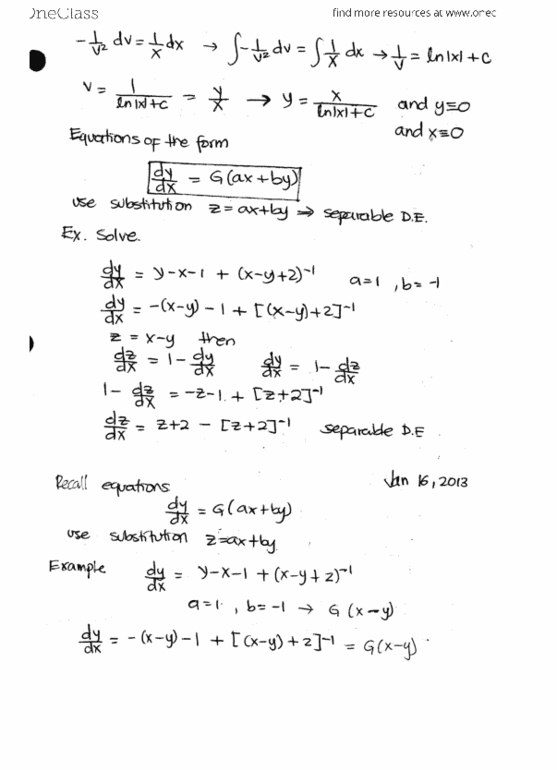 OneClass
find more resources at www.onec
-1/v² dv = 1/x dx → ∫-1/v² dv = ∫1/x dx → 1/v = ln|x| + C
v = 1/(ln|x|+C) = y/x → y = x/(ln|x|+C) and y≡0
and x≡0
Equations of the form
dy/dx = G(ax+by)
use substitution z=ax+by ⇒ separable D.E.
Ex. Solve.
dy/dx = y-x-1 + (x-y+2)⁻¹ a=1, b=-1
dy/dx = -(x-y)-1 + [(x-y)+2]⁻¹
z = x-y then
dz/dx = 1 - dy/dx dy/dx = 1 - dz/dx
1 - dz/dx = -z-1 + [z+2]⁻¹
dz/dx = z+2 - [z+2]⁻¹ separable D.E
Recall equations Jan 16, 2013
dy/dx = G(ax+by)
use substitution z=ax+by
Example dy/dx = y-x-1 + (x-y+2)⁻¹
a=1, b=-1 → G(x-y)
dy/dx = -(x-y)-1 + [(x-y)+2]⁻¹ = G(x-y)